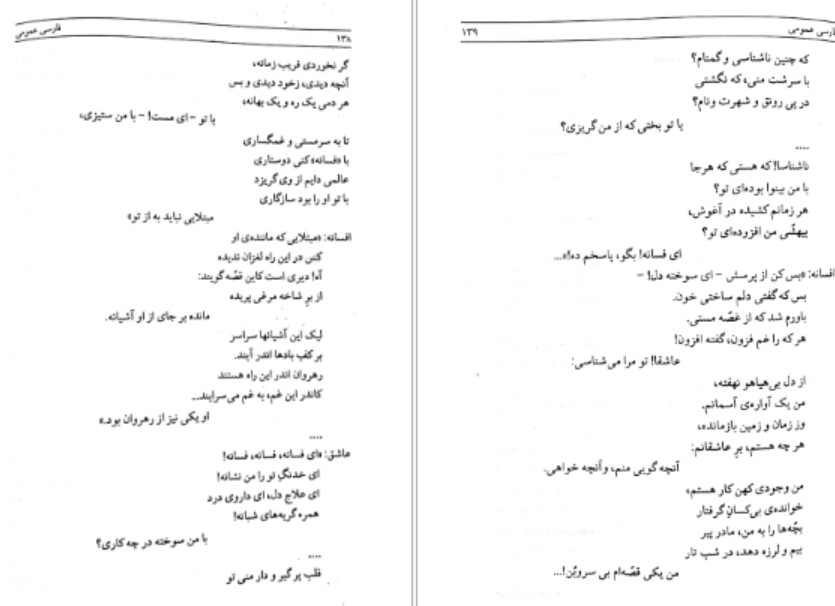 فارسی عمومی
۱۳۸
گر نخوردی فریب زمانه،
آنچه دیدی، ز خود دیدی و بس
هر دمی یک ره و یک بهانه،
با تو - ای مست! - با من ستیزی،
تا به سرمستی و غمگساری
با «فسانه» کنی دوستاری
عالمی دایم از وی گریزد
با تو او را بود سازگاری
مبتلایی نیابد به از تو»
افسانه: «مبتلایی که ماننده‌ی او
کس در این راه لغزان ندیده
آه! دیری است کاین قصّه گویند:
از بر شاخه مرغی پریده
مانده بر جای از او آشیانه.
لیک این آشیانها سراسر
بر کف بادها اندر آیند.
رهروان اندر این راه هستند
کاندر این غم، به غم می‌سرایند...
او یکی نیز از رهروان بود.»
....
عاشق: «ای فسانه، فسانه، فسانه!
ای خدنگ تو را من نشانه!
ای علاج دل، ای داروی درد
همره گریه‌های شبانه!
با من سوخته در چه کاری؟
....
قلب پر گیر و دار منی تو
فارسی عمومی
۱۳۹
که چنین ناشناسی و گمنام؟
یا سرشت منی، که نگشتی
در پی رونق و شهرت و نام؟
یا تو بختی که از من گریزی؟
....
ناشناسا! که هستی که هر جا
با من بینوا بوده‌ای تو؟
هر زمانم کشیده در آغوش،
بیهشّی من افزوده‌ای تو؟
ای فسانه! بگو، پاسخم ده!»...
افسانه: «بس کن از پرسش - ای سوخته دل! -
بس که گفتی دلم ساختی خون.
باورم شد که از غصّه مستی.
هر که را غم فزون، گفته افزون!
عاشقا! تو مرا می‌شناسی:
از دل بی‌هیاهو نهفته،
من یک آواره‌ی آسمانم.
وز زمان و زمین بازمانده،
هر چه هستم، بر عاشقانم:
آنچه گویی منم، وآنچه خواهی.
من وجودی کهن کار هستم،
خوانده‌ی بی‌کسان گرفتار
بچّه‌ها را به من، مادر پیر
بیم و لرزه دهد، در شب تار
من یکی قصّه‌ام بی سروبُن!...